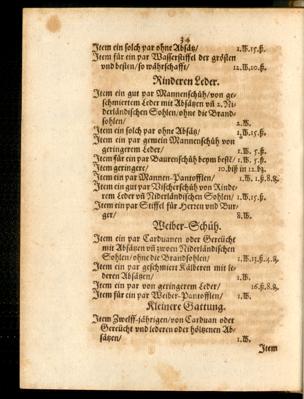 34
Item ein solch par ohne Absätz/ 1.W.15.ß.
Item für ein par Wasserstiffel der grösten
und besten/ so währschafft/ 12.W.10.ß.
Rinderen Leder.
Item ein gut par Mannenschüh/ von ge-
schmiertem Leder mit Absätzen uñ 2. Ni-
derländischen Sohlen/ ohne die Brand-
sohlen/ 2.W.
Item ein solch par ohne Absätz/ 1.W.15.ß.
Item ein par gemein Mannenschüh von
geringerem Leder/ 1.W. 5.ß.
Item für ein par Baurenschüh beym best/ 1.W. 5.ß.
Item geringere/ 10.biß in 11.bz.
Item ein par Mannen-Pantofflen/ 1.W. 1.ß.8.₰.
Item ein gut par Vischerschüh von Rinde-
rem Leder uñ Niderländischen Sohlen/ 1.W.15.ß.
Item ein par Stiffel für Herren und Bur-
ger/ 8.W.
Weiber-Schüh.
Item ein par Carduanen oder Gereücht
mit Absätzen uñ zwoen Niderländischen
Sohlen/ ohne die Brandsohlen/ 1.W.13.ß.4.₰.
Item ein par geschmiert Kälberen mit le-
deren Absätzen/ 1.W.
Item ein par von geringerem Leder/ 16.ß.8.₰.
Item für ein par Weiber-Pantofflen/ 1.W.
Kleinere Gattung.
Item Zwelff-jährigen/ von Carduan oder
Gereücht und lederen oder höltzenen Ab-
sätzen/ 1.W.
Item